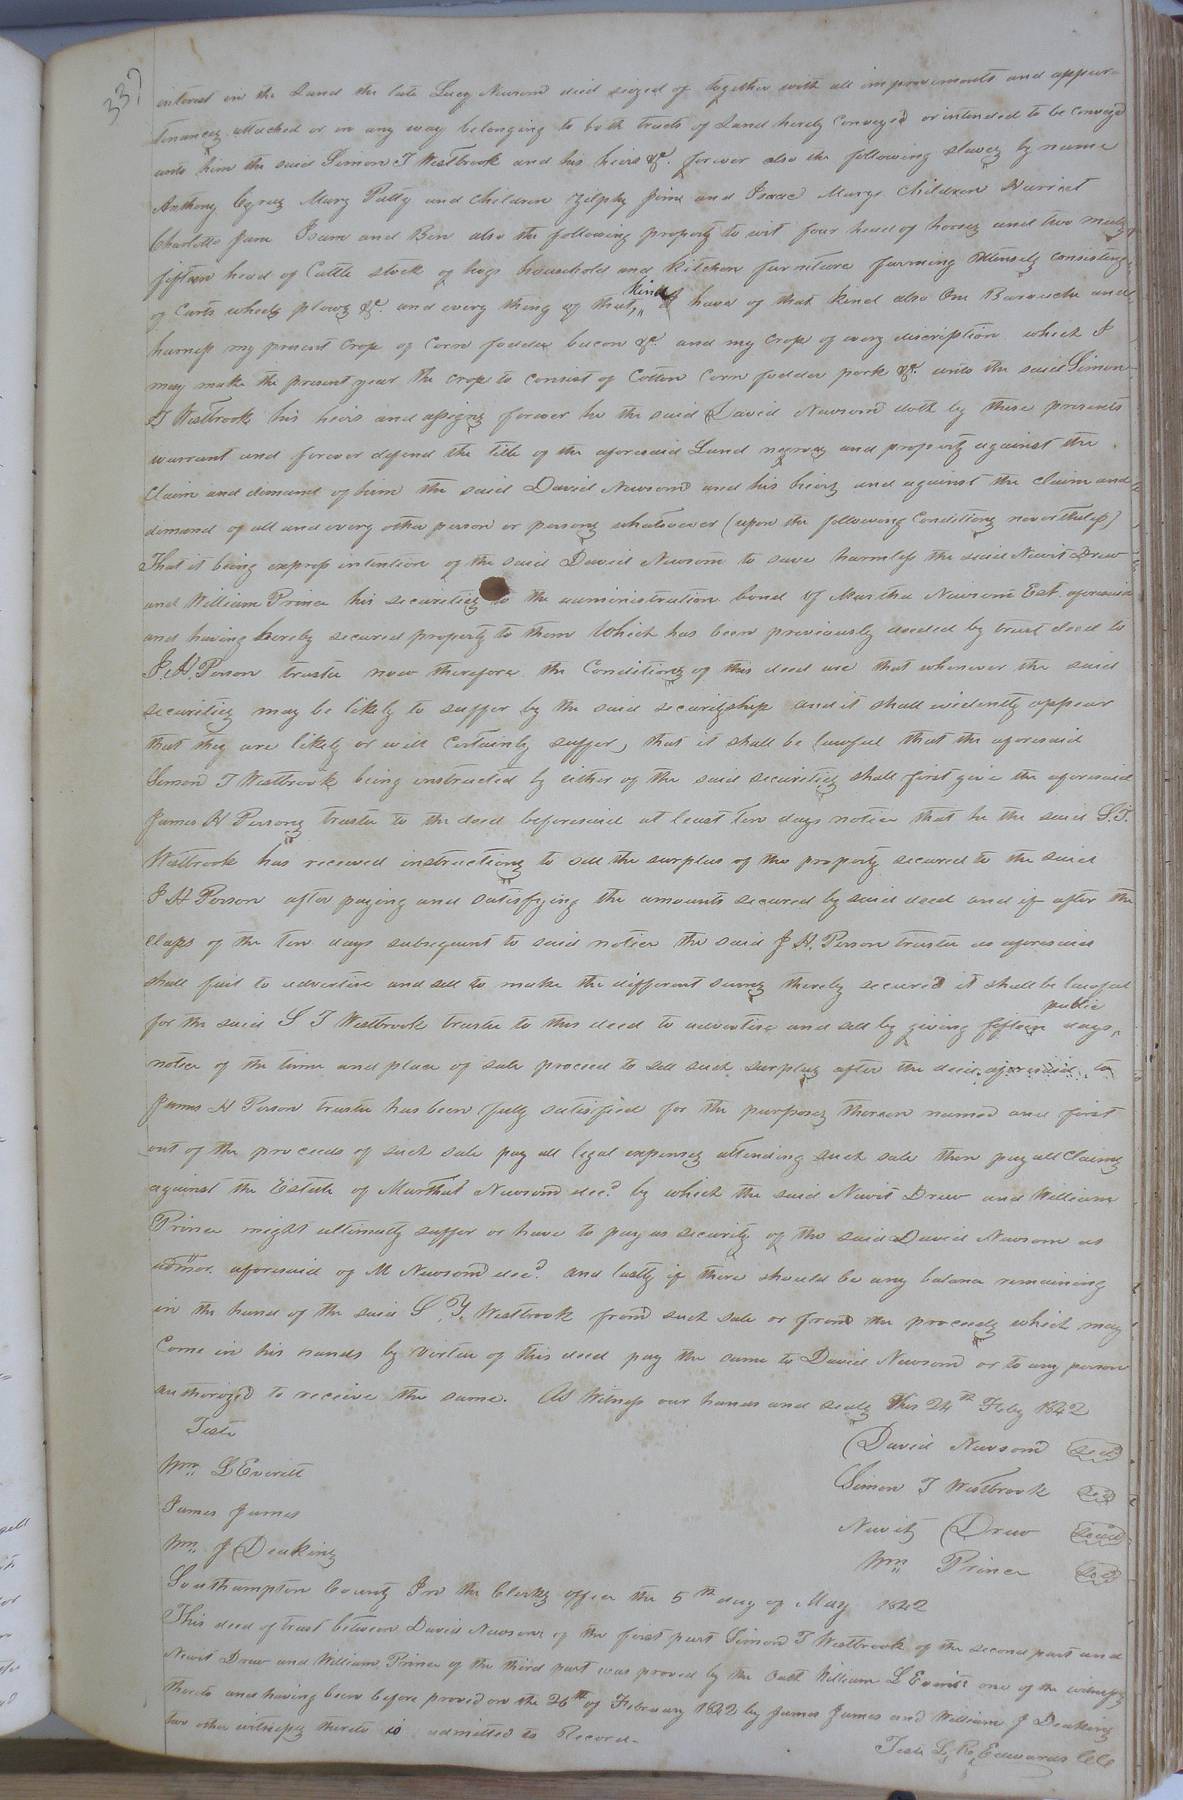 337
interest in the Land the late Lucy Newsom died seized of together with all improvements and appur-
tenances attached or in any way belonging to both tracts of Land hereby conveyed or intended to be conveyd
unto him the said Simon T Westbrook and his heirs &c. forever also the following slaves by name
Anthony Cyrus Mary Patty and children Zilphy Jim and Isaac Marys children Harriet
Charlotte Jane Isam and Ben also the following property to wit four head of horses and two mules
fifteen head of Cattle stock of hogs household and kitchen furniture farming utensels consisting
of Carts wheels plows &c. and every thing of that kind I have of that kind also One Barouche and
harness my present Crop of Corn fodder bacon &c. and my crop of every discription which I
may make the present year the crop to consist of Cotton Corn fodder pork &c. unto the said Simon
T Westbrook his heirs and assigns forever he the said David Newsom doth by these presents
warrant and forever defend the title of the aforesaid Land negroes and property against the
Claim and demand of him the said David Newsom and his heirs and against the claim and
demand of all and every other person or persons whatsoever (upon the following Conditions nevertheless)
That it being express intention of the said David Newsom to save harmless the said Newit Drew
and William Prince his securities to the administration bond of Martha Newsom Est. aforesaid
and having hereby secured property to them which has been previously deeded by trust deed to
J. H. Person trustee now therefore the Conditions of this deed are that whenever the said
securities may be likely to suffer by the said securityship and it shall evidently appear
that they are likely or will certainly suffer, that it shall be lawful that the aforesaid
Simon T Westbrook being instructed by either of the said securities shall first give the aforesaid
James H Persons trustee to the deed beforesaid at least ten days notice that he the said S. T.
Westbrook has received instructions to sell the surplus of the property secured to the said
J H Person after paying and satisfying the amounts secured by said deed and if after the
elapse of the ten days subsequent to said notice the said J H. Person trustee as aforesaid
shall fail to advertise and sell to make the different sums thereby secured it shall be lawful
for the said S T Westbrook trustee to this deed to advertise and sell by giving fifteen days public
notice of the time and place of sale proceed to sell such surplus after the deed aforesaid to
James H Person trustee has been fully satisfied for the purposes therein named and first
out of the proceeds of such sale pay all legal expenses attending such sale then pay all Claims
against the Estate of Martha Newsom decd. by which the said Newit Drew and William
Prince might ultimately suffer or have to pay as security of the said David Newsom as
admor. aforesaid of M Newsom decd. and lastly if there should be any balance remaining
in the hand of the said S. T. Westbrook from such sale or from the proceeds which may
Come in his hands by virtue of this deed pay the same to David Newsom or to any person
authorized to receive the same. As Witness our hands and seals this 24th Feby 1842
Teste David Newsom Seal
Wm. L Everitt Simon T Westbrook Seal
James James Newit Drew Seal
Wm. J Deakins Wm Prince Seal
Southampton County In the Clerks office the 5th day of May 1842
This deed of trust between David Newsom of the first part Simon T Westbrook of the second part and
Newit Drew and William Prince of the third part was proved by the Oath William L Everitt one of the witnesses
thereto and having been before proved on the 26th of February 1842 by James James and William J Deakins
two other witnesses thereto is admitted to Record.
Teste L. R. Edwards CC